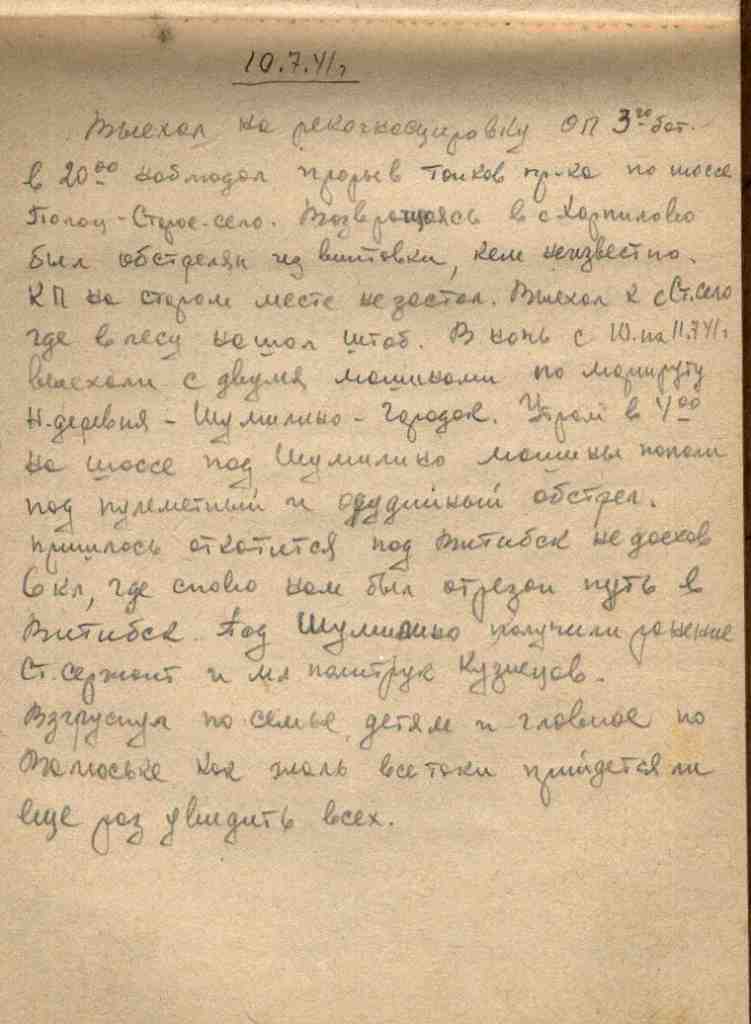 10.7.41г
Выехал на рекогносцировку ОП 3го бат.
в 20 00 наблюдал прорыв танков пр-ка по шоссе
Полоц - Старое-село. Возвращаясь в с Карпилово
был обстрелян из винтовки, кем неизвестно.
КП на старом месте не застал. Выехал к с Ст. село
где в лесу нашол штаб. В ночь с 10. на 11.7.41г
выехали с двумя машинами по маршруту
Н.деревня - Шумилино - Городок. Утром в 4 00
на шоссе под Шумилино машины попали
под пулеметный и орудийный обстрел.
пришлось откатится под Витибск не доехав
6 кл, где снова нам был отрезан путь в
Витибск. Под Шумилино получили ранение
Ст. сержант и мл политрук Кузнецов.
Взгруснул по семье, детям и главное по
Валюське как жаль всетаки прийдется ли
еще раз увидить всех.